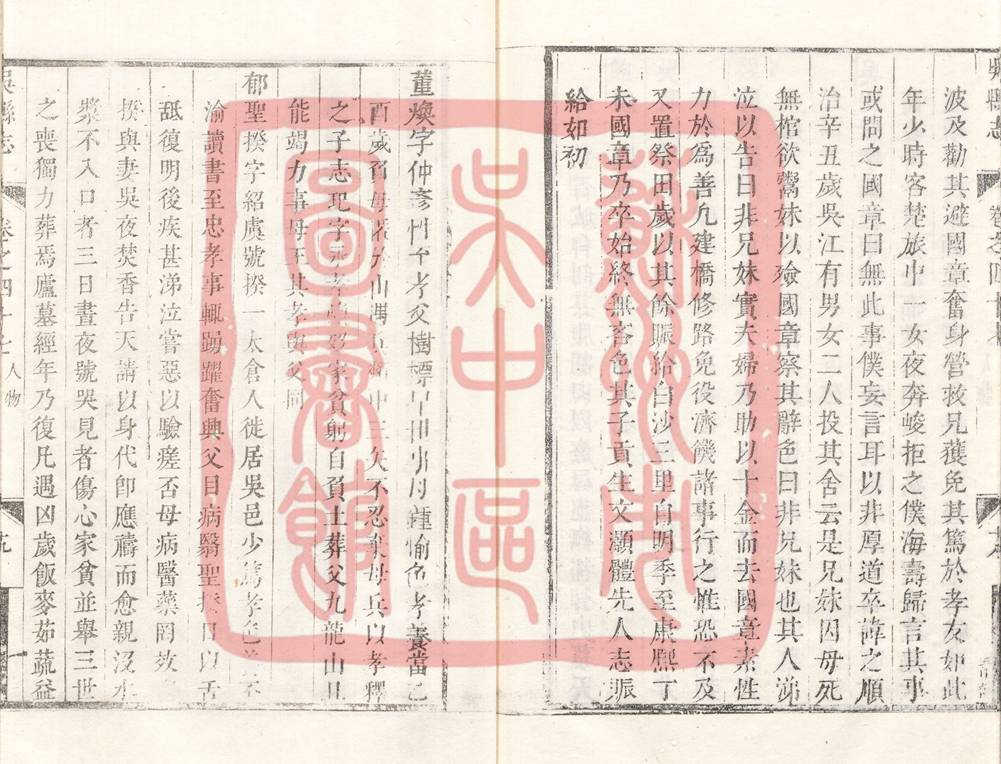 波及勸其避國章奮身營救兄獲免其篤於孝友如此
年少時客楚旅中一女夜奔峻拒之僕海壽歸言其事
或問之國章曰無此事僕妄言耳以非厚道卒諱之順
治辛丑歲吳江有男女二人投其舍云是兄妹因母死
無棺欲鬻妹以殮國章察其辭色曰非兄妹也其人涕
泣以告曰非兄妹實夫婦乃助以十金而去國章素性
力於為善凡建橋修路免役濟饑諸事行之惟恐不及
又置祭田歲以其餘賑給白沙三里自明季至康熙丁
未國章乃卒始終無吝色其子貢生文灝體先人志賑
給如初
董煥字仲彥 至孝父樹 愉色孝養當乙
酉歲 不忍棄母兵以孝釋
之子志 家貧躬自負土葬父九龍山
能竭力事母至其孝與父同
郁聖揆字紹虞號揆一太倉人徙居吳邑少篤孝
渝讀書至忠孝事輒踴躍奮興父目病翳聖揆日以舌
舐復明後疾甚涕泣嘗惡以驗瘥否母病醫藥罔效
揆與妻吳夜焚香告天請以身代即應禱而愈親沒水
漿不入口者三日晝夜號哭見者傷心家貧並舉三世
之喪獨力葬焉廬墓經年乃復凡遇凶歲飯麥茹蔬益
吳縣志 卷之四十七 人物
蘇州市吳中區圖書館